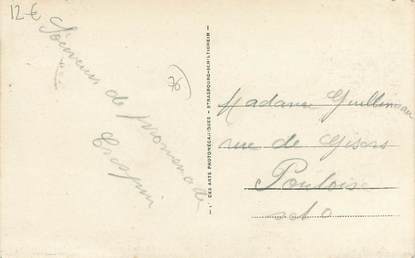 12€
Souvenir de promenade
Crespin
76
DES ARTS PHOTOMÉCANIQUES - STRASBOURG-SCHILTIGHEIM
Madame Guillemeau
rue de Gisors
Pontoise
s et o